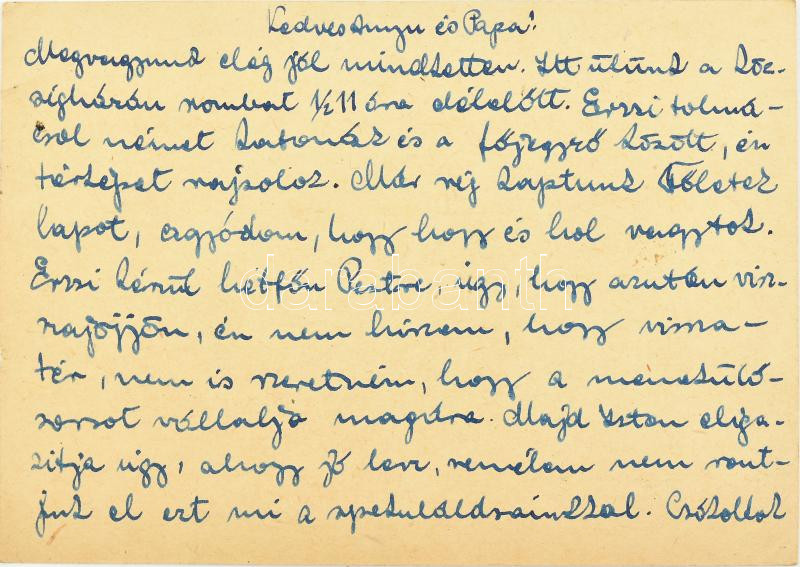 Kedves Anyu és Papa!
Megvagyunk elég jól mindketten. Itt ülünk a köz-
ségházán szombat ½ 11 óra délelőtt. Erzsi tolmá-
csol német katonák és a főjegyző között, én
térképet rajzolok. Már rég kaptunk Tőletek
lapot, aggódom, hogy hogy és hol vagytok.
Erzsi készül hétfőn Pestre, úgy, hogy azután visz-
szajőjjön, én nem hiszem, hogy vissza-
tér, nem is szeretném, hogy a menekülő-
sorsot vállalja magára. Majd Isten eliga-
zitja úgy, ahogy jó lesz, remélem nem ront-
juk el ezt mi a spekulálásainkkal. Csókollak
darabanth